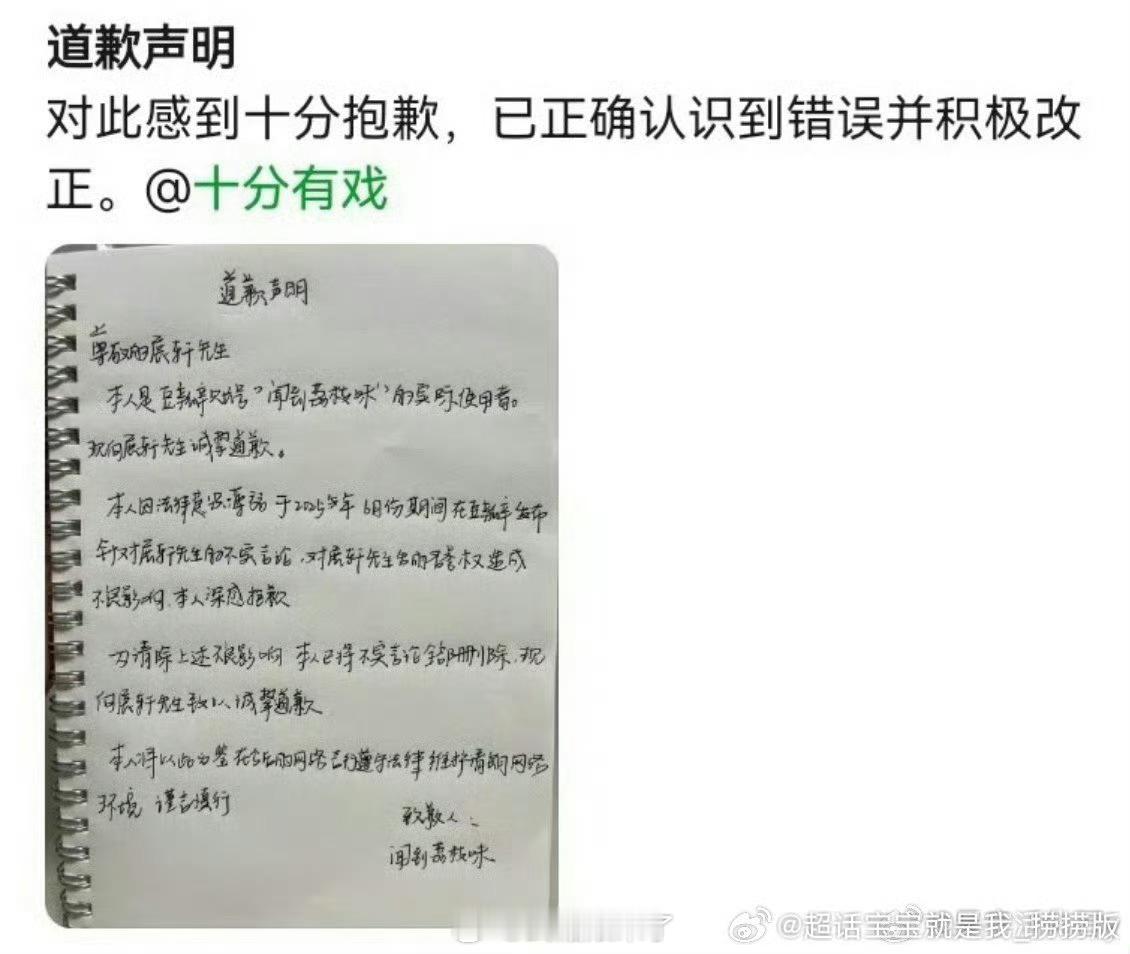 道歉声明
对此感到十分抱歉，已正确认识到错误并积极改
正。@十分有戏
道歉声明
尊敬的展轩先生
本人是豆瓣账号"闻到荔枝味"的实际使用者。
现向展轩先生诚挚道歉。
本人因法律意识薄弱 于2025年6月份期间在豆瓣发布
针对展轩先生的不实言论，对展轩先生名誉权造成
不良影响，本人深感抱歉
为清除上述不良影响 本人已将不实言论全部删除，现
向展轩先生致以诚挚道歉
本人将以此为鉴 在今后的网络言行遵守法律 维护清朗网络
环境 谨言慎行
致歉人：
闻到荔枝味
@超话宝宝就是我汪捞捞版